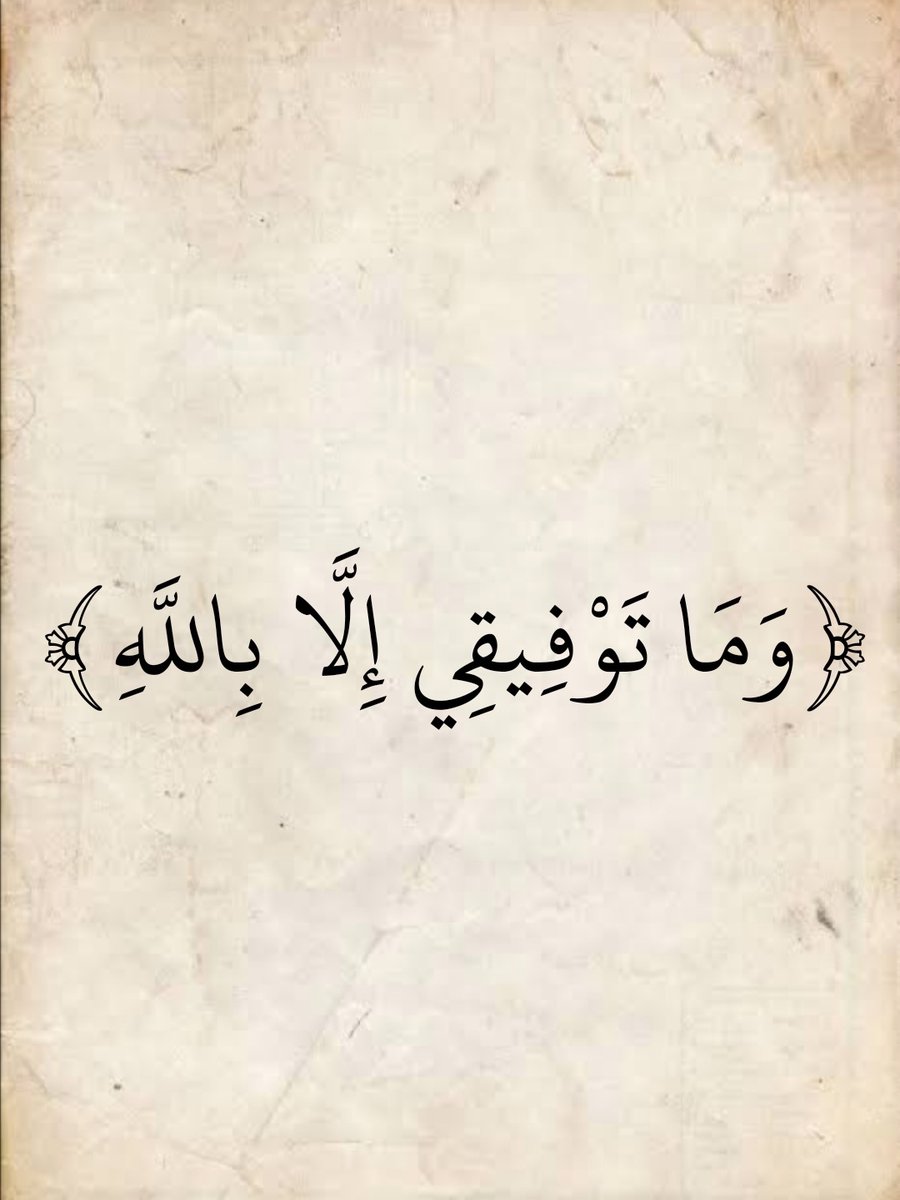 ﴿وَمَا تَوْفِيقِي إِلَّا بِاللَّهِ﴾